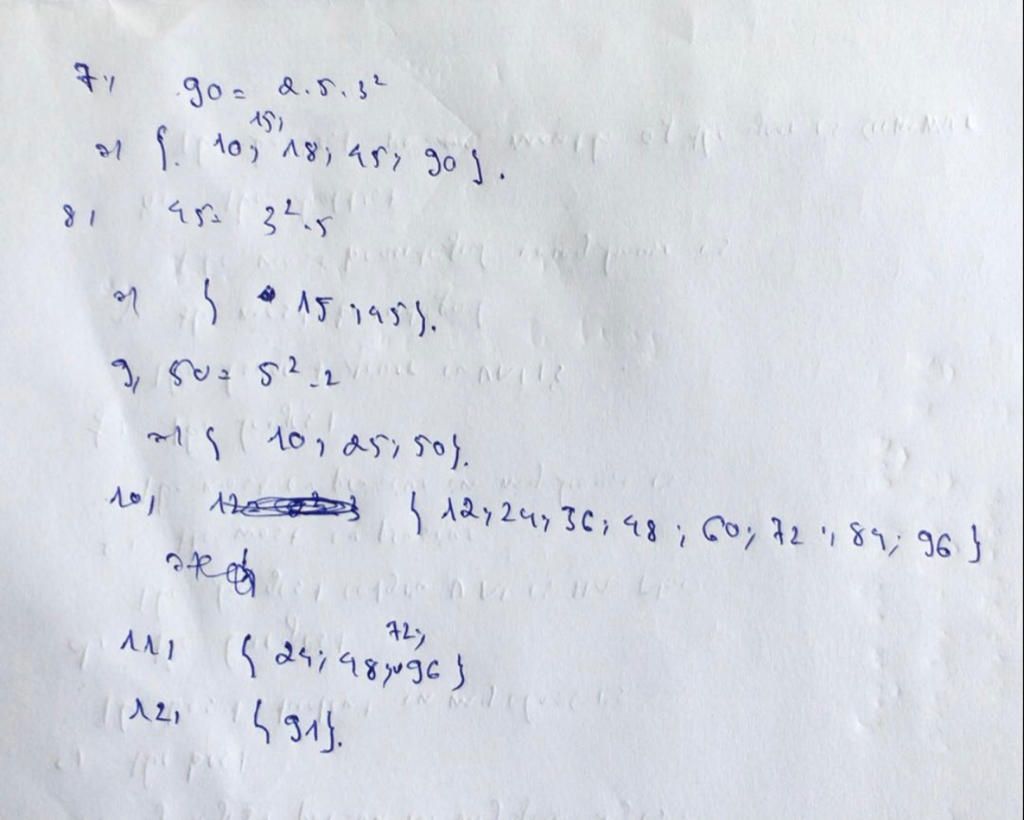 7, 90 = 2.5.3²
=> { 10; 15; 18; 45; 90 }.
8, 45 = 3².5
=> { 15; 45 }.
9, 50 = 5².2
=> { 10; 25; 50 }.
10, { 12; 24; 36; 48; 60; 72; 84; 96 }
11, { 24; 48; 72; 96 }
12, { 91 }.